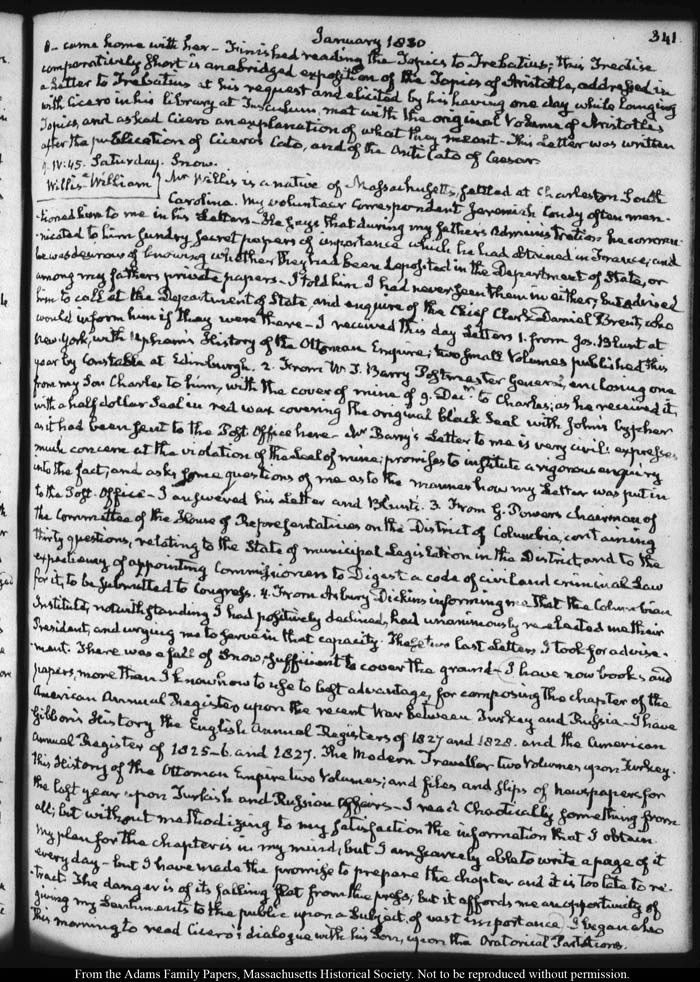 January 1830
341.
to come home with her — Finished reading the Topics to Trebatius; this Treatise
comparatively short is an abridged exposition of the Topics of Aristotle, addressed in
a Letter to Trebatius at his request and elicited by his having one day while lounging
with Cicero in his library at Tusculum, met with the original Volume of Aristotle's
Topics, and asked Cicero an explanation of what they meant — This Letter was written
after the publication of Cicero's Cato, and of the Anti Cato of Caesar.
9. IV:45. Saturday. Snow.
Willis William } Mr Willis is a native of Massachusetts, settled at Charleston South
Carolina. My volunteer Correspondent Jeremiah Condy often men-
-tioned him to me in his Letters — He says that during my fathers Administration he commu-
-nicated to him sundry secret papers of importance which he had obtained in France; and
he was desirous of knowing whether they had been deposited in the Department of State, or
among my fathers private papers — I told him I had never seen them in either, but advised
him to call at the Department of State, and enquire of the Chief Clerk Daniel Brent, who
would inform him if they were there — I received this day Letters 1. from Jos. Blunt at
New-York, with Upham's History of the Ottoman Empire; two small Volumes published this
year by Constable at Edinburgh. 2. From W. T. Barry Postmaster General, enclosing one
from my Son Charles to him, with the cover of mine of 9. Decr. to Charles; as he received it,
with a half dollar Seal in red wax covering the original black Seal with John's Cypher
as it had been sent to the Post Office here — Mr Barry's Letter to me is very civil: expresses
much concern at the violation of the Seal of mine; promises to institute a rigorous enquiry
into the fact; and asks some questions of me as to the manner how my Letter was put in
to the Post-Office — I answered his Letter and Blunt's. 3. From G. Powers chairman of
the Committee of the House of Representatives on the District of Columbia, containing
thirty questions, relating to the State of municipal Legislation in the District, and to the
expediency of appointing Commissioners to Digest a code of civil and criminal Law
for it, to be submitted to Congress. 4. From Asbury Dickins informing me that the Columbian
Institute, notwithstanding I had positively declined, had unanimously re-elected me their
President, and urging me to serve in that capacity. These two last Letters I took for advise-
-ment. There was a fall of Snow, sufficient to cover the ground — I have now books and
papers, more than I know how to use to best advantage, for composing the chapter of the
American Annual Register upon the recent War between Turkey and Russia — I have
Gibbon's History the English Annual Registers of 1827 and 1828. and the American
Annual Register of 1825-6. and 1827. The Modern Traveller two Volumes upon Turkey.
this History of the Ottoman Empire two Volumes; and files and slips of Newspapers for
the last year upon Turkish and Russian Affairs — I read Chaotically something from
all; but without methodizing to my satisfaction the information that I obtain.
My plan for the chapter is in my mind; but I am scarcely able to write a page of it
every day — but I have made the promise to prepare the chapter and it is too late to re-
-tract. The danger is of its falling flat from the press; but it affords me an opportunity of
giving my Sentiments to the public upon a Subject of vast importance. I began also
this morning to read Cicero's dialogue with his Son, upon the Oratorical Partitions.
From the Adams Family Papers, Massachusetts Historical Society. Not to be reproduced without permission.